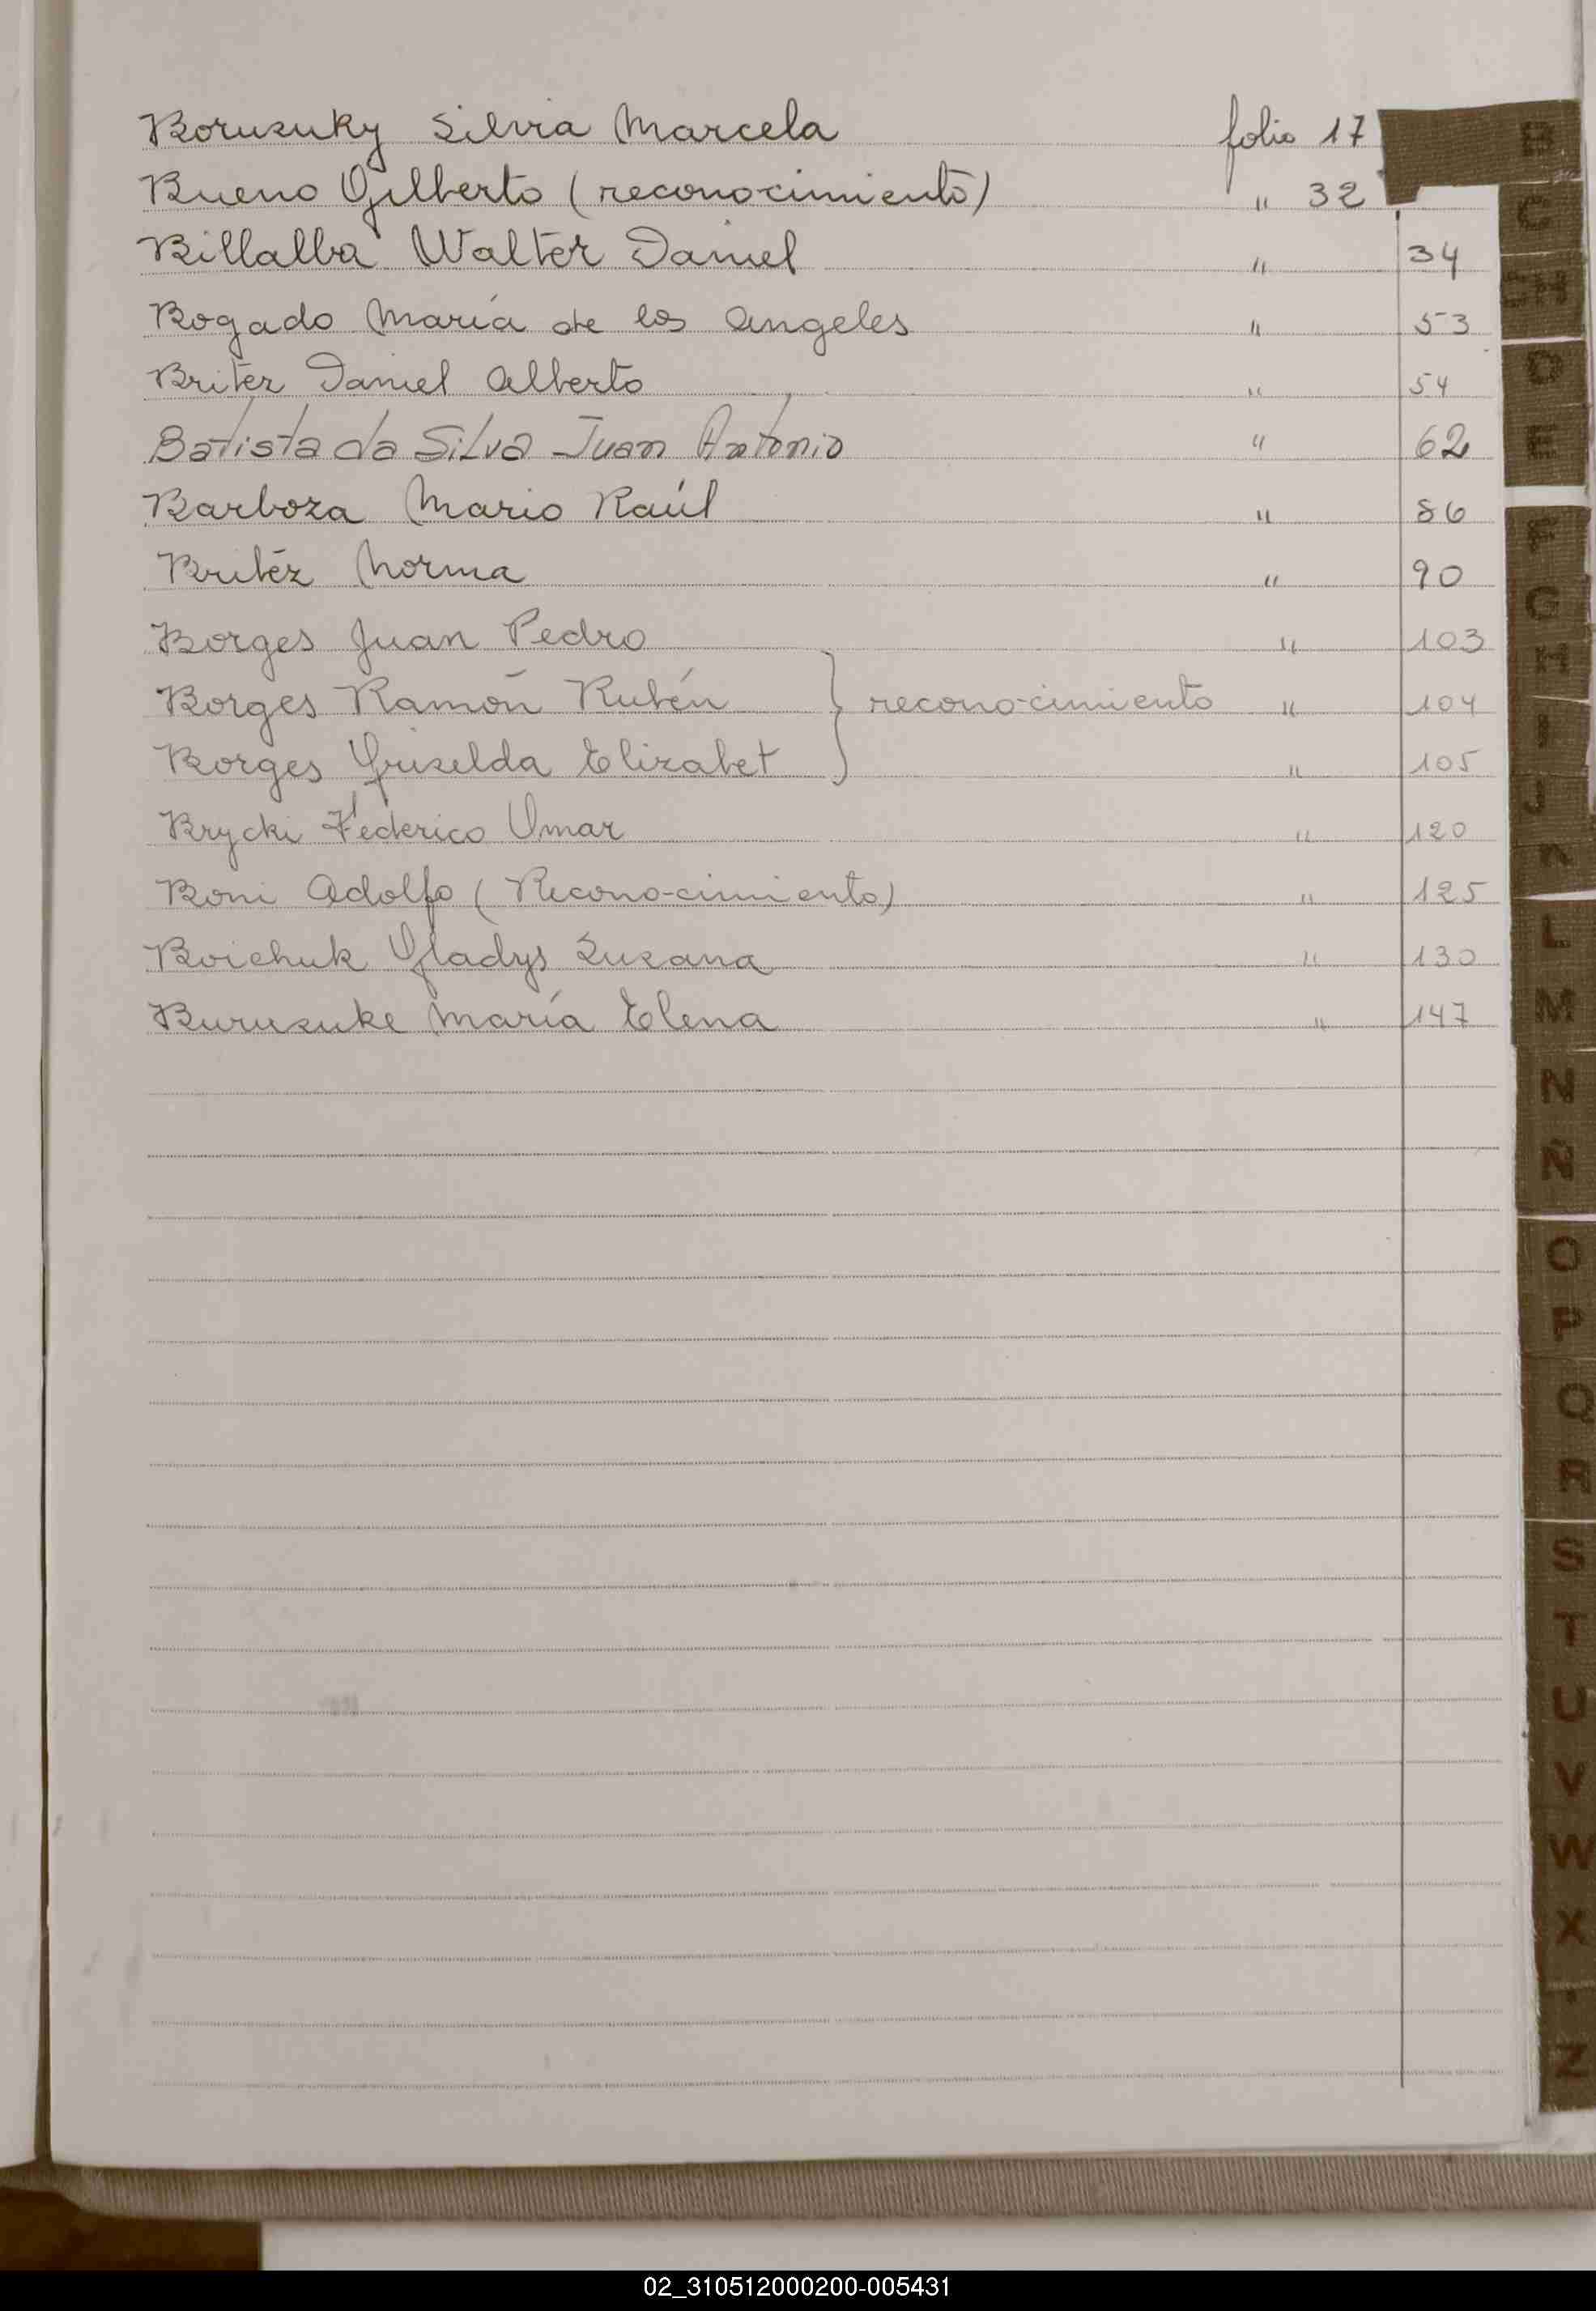 Boruzuky Silvia Marcela folio 17
Bueno Gilberto (reconocimiento) " 32
Billalba Walter Daniel " 34
Bogado María de los Angeles " 53
Britez Daniel Alberto " 54
Batista da Silva Juan Antonio " 62
Barboza Mario Raúl " 86
Britéz Norma " 90
Borges Juan Pedro " 103
Borges Ramón Rubén } reconocimiento " 104
Borges Griselda Elizabet " 105
Brycki Federico Omar " 120
Boni Adolfo (Reconocimiento) " 125
Boichuk Gladys Susana " 130
Buruzuke María Elena " 147
B
C
CH
D
E
F
G
H
I
J
K
L
M
N
Ñ
O
P
Q
R
S
T
U
V
W
X
Z
02_310512000200-005431